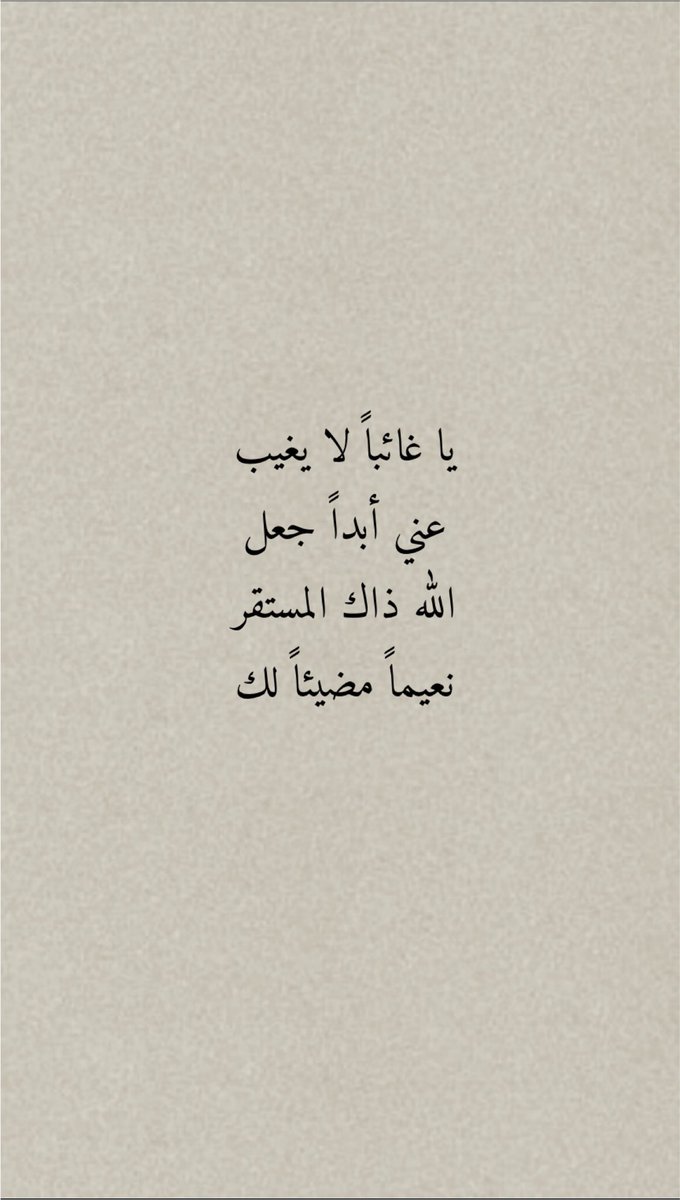 يا غائباً لا يغيب
عني أبداً جعل
الله ذاك المستقر
نعيماً مضيئاً لك